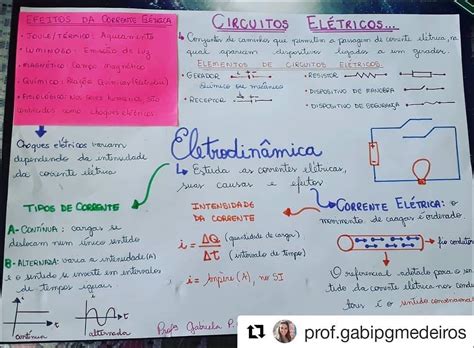 EFEITOS DA CORRENTE ELÉTRICA
• JOULE/TÉRMICO: Aquecimento
• LUMINOSO: Emissão de luz
• MAGNÉTICO: Campo magnético
• QUÍMICO: Reações Químicas
• FISIOLÓGICO: Nos seres humanos são
conhecidos como choques elétricos.
CIRCUITOS ELÉTRICOS...
↳ Conjuntos de caminhos que permitem a passagem de corrente elétrica, no
qual aparecem dispositivos ligados a um gerador.
ELEMENTOS DE CIRCUITOS ELÉTRICOS:
• GERADOR
Químico ou mecânico
• RECEPTOR
• RESISTOR
• DISPOSITIVO DE MANOBRA
• DISPOSITIVO DE SEGURANÇA
Choques elétricos variam
dependendo da intensidade
da corrente elétrica
Eletrodinâmica
↳ Estuda as correntes elétricas,
suas causas e efeitos
TIPOS DE CORRENTE
A- CONTÍNUA: cargas se
deslocam num único sentido
B- ALTERNADA: varia a intensidade (A)
e o sentido se inverte em intervalos
de tempos iguais
i
t
contínua
i
t
alternada
INTENSIDADE
DA CORRENTE
i = ΔQ (quantidade de cargas)
Δt (intervalo de tempo)
i = Ampère (A), no SI
Profª Gabriela P.
CORRENTE ELÉTRICA: o
movimento de cargas é ordenado
fio condutor
O referencial adotado para o sen
tido da corrente elétrica nos condu
tores é o sentido convencional
prof.gabipgmedeiros